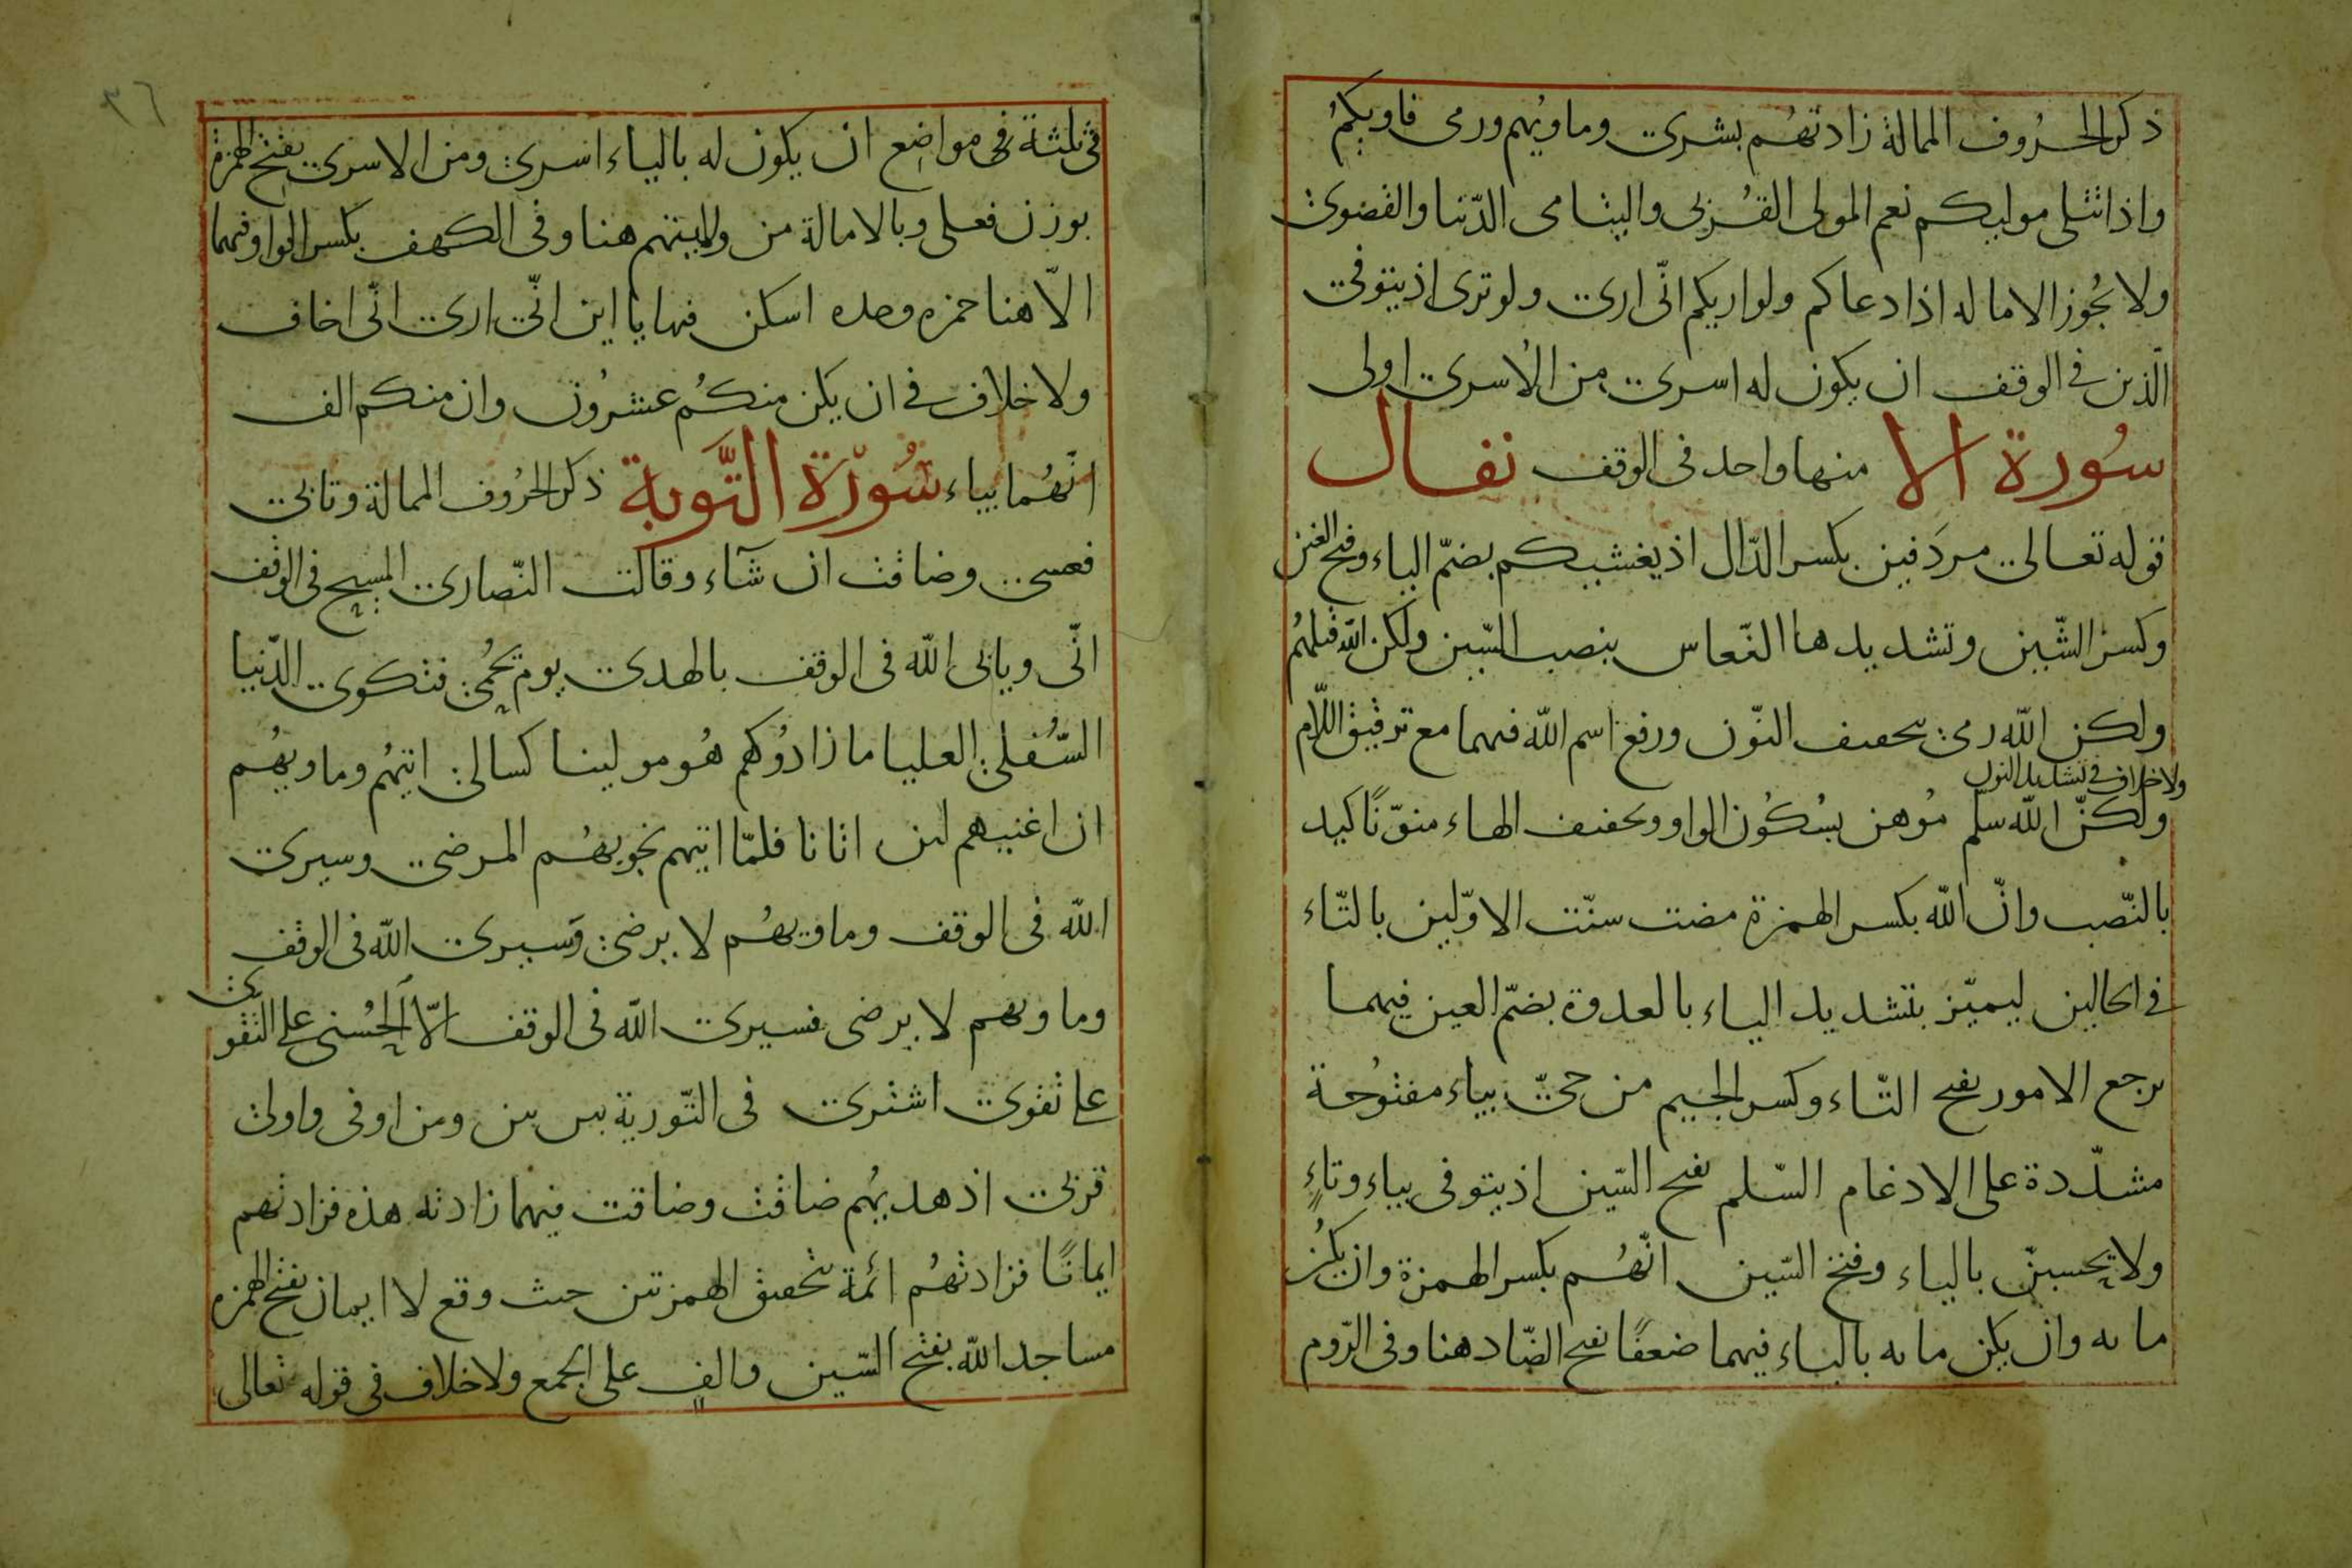 ذكر الحروف الممالة زادتهم بشرى وماويهم ورمى فاويكم
واذا تتلى موليكم نعم المولى القربى واليتامى الدّنيا والقصوى
ولا يجوز الاماله اذا دعاكم ولو اريكم انّى ارى ولو ترى اذ يتوفى
الّذين فى الوقف ان يكون له اسرى من الاسرى اولى
سورة الا منها واحد فى الوقف نفال
قوله تعالى مردفين بكسر الدّال اذ يغشيكم بضمّ الياء وفتح الغين
وكسر الشّين وتشديدها النّعاس بنصب السّين ولكن الله قتلهم
ولكن الله رمى بتخفيف النّون ورفع اسم الله فيهما مع ترقيق اللّام
ولا خلاف فى تشديد النون
ولكنّ الله سلّم موهن بسكون الواو وتخفيف الهاء منوّنا كيد
بالنّصب وانّ الله بكسر الهمزة مضت سنّت الاوّلين بالتّاء
فى الحالين ليميّز بتشديد الياء بالعدوة بضمّ العين فيهما
ترجع الامور بفتح التّاء وكسر الجيم من حىّ بياء مفتوحة
مشدّدة على الادغام السّلم بفتح السّين اذ يتوفى بياء وتاءٍ
ولا يحسبنّ بالياء وفتح السّين انّهم بكسر الهمزة وان يكن
مايه وان يكن مايه بالياء فيهما ضعفًا بفتح الضّاد هنا وفى الرّوم
٣٦
فى ثلثة مواضع ان يكون له بالياء اسرى ومن الاسرى بفتح الهمزة
بوزن فعلى وبالامالة من ولايتهم هنا وفى الكهف بكسر الواو فيهما
الّا هنا حمزه وحده اسكن فيها يااين انّى ارى انّى اخاف
ولا خلاف فى ان يكن منكم عشرون وان منكم الف
انّهما بياء سورة التّوبة ذكر الحروف الممالة وتابى
فعسى وضاقت ان شآء وقالت النّصارى المسيح فى الوقف
انّى ويابى الله فى الوقف بالهدى يوم يحمى فتكوى الدّنيا
السّفلى العليا ما زادوكم هو مولينا كسالى اتيهم وماويهم
ان اغنيهم لئن اتانا فلمّا اتيهم نجويهم المرضى وسيرى
الله فى الوقف وماويهم لا يرضى وسيرى الله فى الوقف
وماويهم لا يرضى فسيرى الله فى الوقف الّا الحسنى على التقوى
على تقوى اشترى فى التّورية بين بين ومن اوفى واولى
قربى اذ هديهم ضاقت وضاقت فيهما زادته هذه فزادتهم
ايمانًا فزادتهم ائمة بتحقيق الهمزتين حيث وقع لا ايمان بفتح الهمزه
مساجد الله بفتح السّين والفٍ على الجمع ولا خلاف فى قوله تعالى